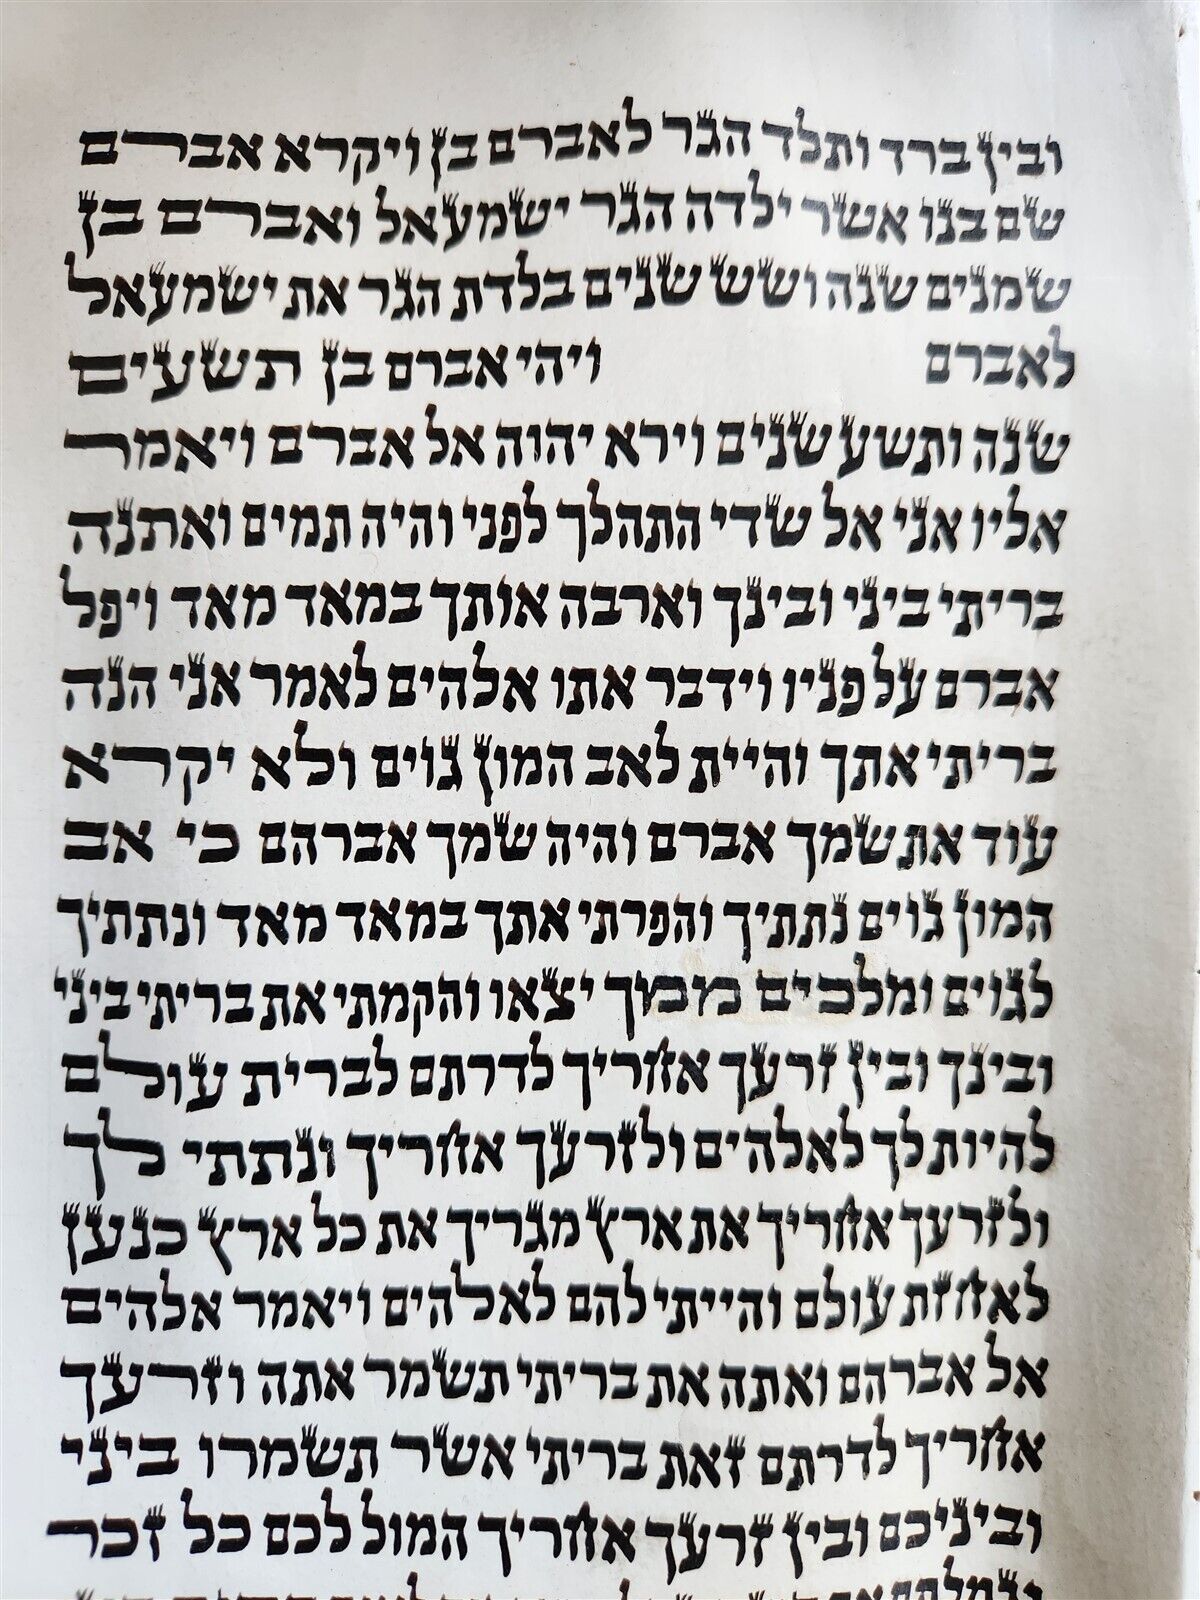 ובין ברד ותלד הגר לאברם בן ויקרא אברם
שם בנו אשר ילדה הגר ישמעאל ואברם בן
שמנים שנה ושש שנים בלדת הגר את ישמעאל
לאברם ויהי אברם בן תשעים
שנה ותשע שנים וירא יהוה אל אברם ויאמר
אליו אני אל שדי התהלך לפני והיה תמים ואתנה
בריתי ביני ובינך וארבה אותך במאד מאד ויפל
אברם על פניו וידבר אתו אלהים לאמר אני הנה
בריתי אתך והיית לאב המון גוים ולא יקרא
עוד את שמך אברם והיה שמך אברהם כי אב
המון גוים נתתיך והפרתי אתך במאד מאד ונתתיך
לגוים ומלכים ממך יצאו והקמתי את בריתי ביני
ובינך ובין זרעך אחריך לדרתם לברית עולם
להיות לך לאלהים ולזרעך אחריך ונתתי לך
ולזרעך אחריך את ארץ מגריך את כל ארץ כנען
לאחזת עולם והייתי להם לאלהים ויאמר אלהים
אל אברהם ואתה את בריתי תשמר אתה וזרעך
אחריך לדרתם זאת בריתי אשר תשמרו ביני
וביניכם ובין זרעך אחריך המול לכם כל זכר